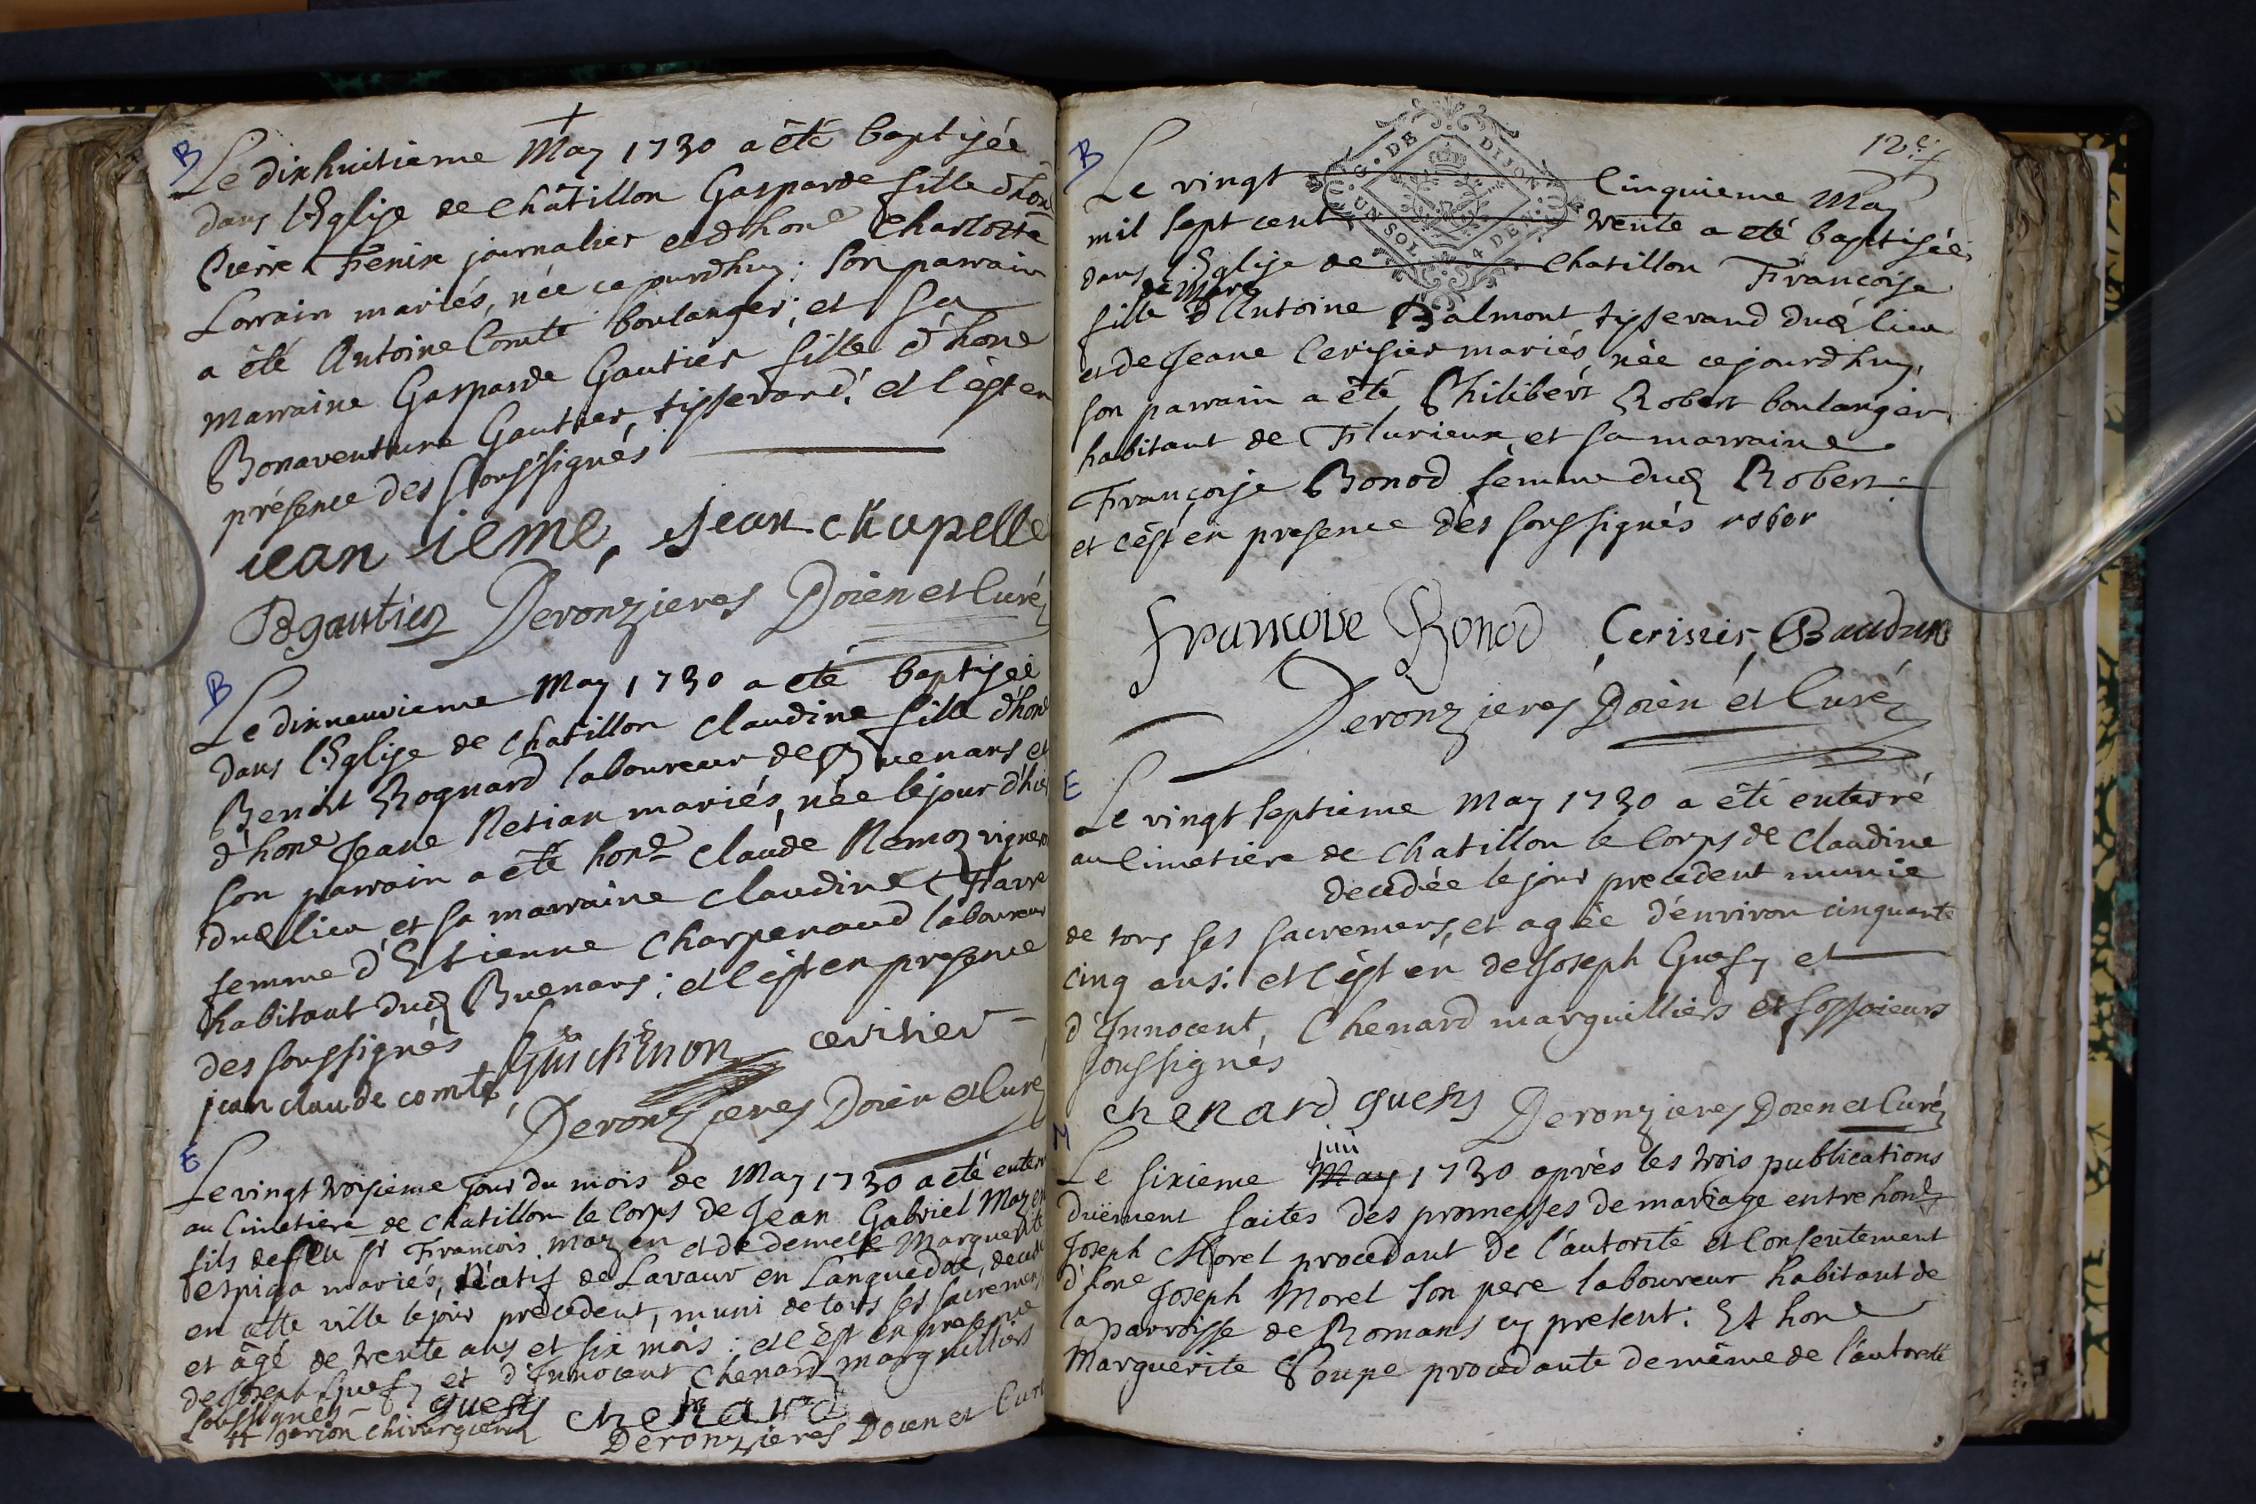 B
Le dixhuitieme May 1730 a été baptisée
dans l'Eglise de Châtillon Gasparde fille d'hon
Pierre Fenix journalier et d'hone Charlotte
Lorrain mariés, née ce jourdhuy: son parrain
a été Antoine Comte boulanger, et sa
marraine Gasparde Gautier fille d'hone
Bonaventure Gautier tisserand: et c'est en
présence des soussignés
jean ieme, jean chapelle
Bgautier Deronzieres Doien et Curé
B
Le dixneuvieme May 1730 a été baptisée
dans l'Eglise de Chatillon Claudine fille d'hon
Benoit Rognard laboureur de Buenans et
d'hone Jeane Netian mariés, née le jour d'hier
son parrain a été hone Claude Nemoz vigneron
dud lieu et sa marraine Claudine Favre
femme d'Estienne Charpenaud laboureur
habitant dud Buenans: et c'est en presence
des soussignés
jean claude comte, Guichenon cerisier
Deronzieres Doien et Curé
E
Le vingt troisieme jour du mois de May 1730 a eté enter
au Cimetiere de Châtillon le Corps de Jean Gabriel Mazen
fils de feu Sr François mazen et de demelle Marguerite
espiga mariés, Natif de Lavaur en Languedoc, decedé
en cette ville le jour precedent, muni de tous ses sacremens
et âgé de trente ans et six mois: et c'est en presence
de Joseph Guesy et d'Innocent Chenard marguilliers
soussignés guesy chenard
garçon chirurgien Deronzieres Doien et Curé
12e
B
Le vingt Cinquieme May
mil sept cent trente a eté baptisée
dans l'Eglise de Chatillon Françoise
fille d'Antoine Balmont tisserand dud lieu
et de Jeane Cerisier mariés née cejourdhuy,
son parrain a été Philibert Robert boulanger
habitant de Flurieux et sa marraine
Françoise Bonod femme dud Robert:
et c'est en presence des soussignés rober
francoise Bonod Cerisier, Baudun
Deronzieres Doien et Curé
G. DE DIJON
UN SOL 4 DEN
E
Le vingt septieme May 1730 a été enterré
au Cimetiere de Chatillon le Corps de Claudine
decedée le jour precedent munie
de tous ses sacremens, et agée d'environ cinquante
cinq ans: et c'est en de Joseph Guesy et
d'Innocent Chenard marguilliers et fossoieurs
soussignés
chenard guesy Deronzieres Doien et Curé
M
juin
Le sixieme May 1730 après les trois publications
duëment faites des promesses de mariage entre hone
Joseph Morel procedant de l'autorité et Consentement
d'hone Joseph Morel son pere laboureur habitant de
la parroisse de Romans cy present: Et hone
Marguerite Poupe procedante de même de l'autorité